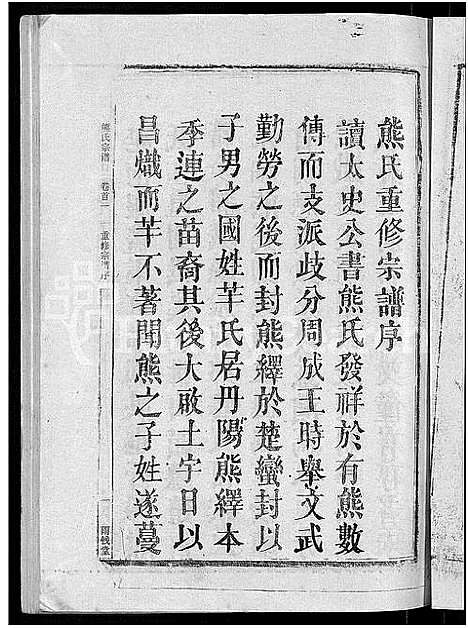 熊氏重修宗譜序
讀太史公書熊氏發祥於有熊數
傳而支派歧分周成王時舉文武
勤勞之後而封熊繹於楚蠻封以
子男之國姓芉氏居丹陽熊繹本
季連之苗裔其後大啟土宇日以
昌熾而芉不著聞熊之子姓遂蔓
熊氏宗譜 卷首二 重修宗譜序